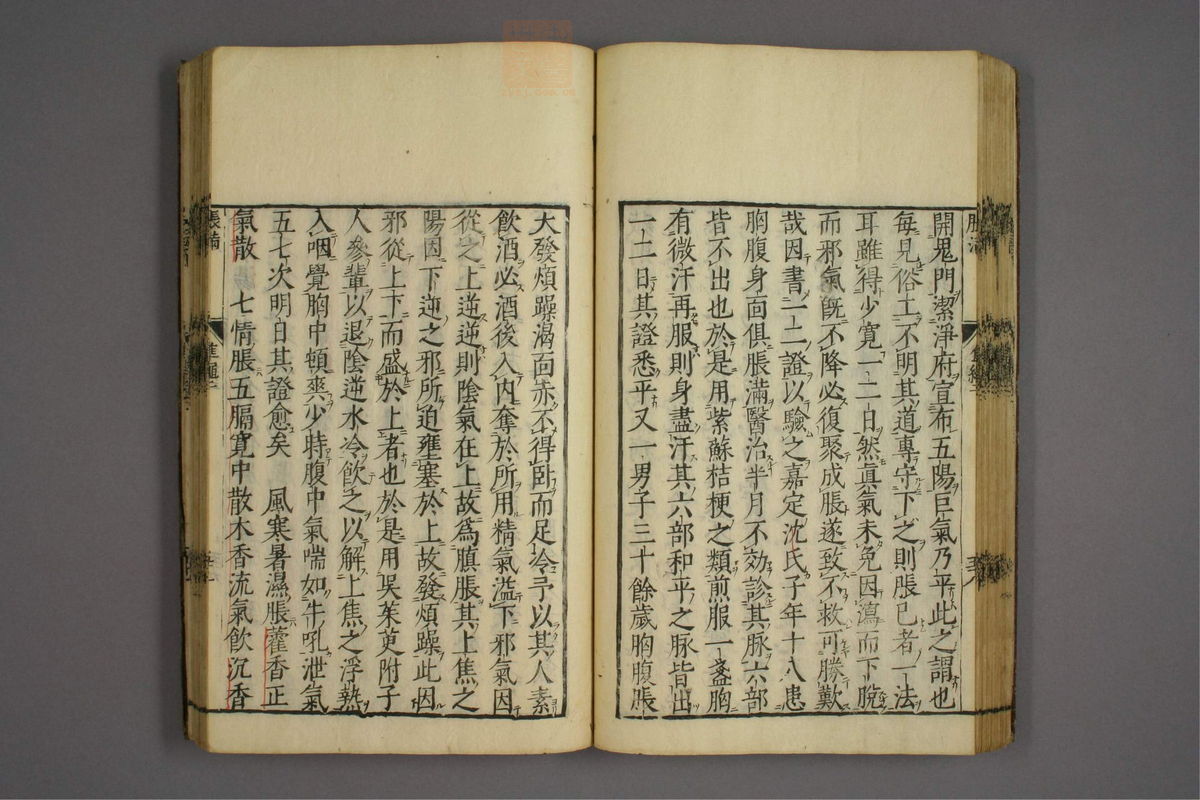 開鬼門潔淨府宣布五陽巨氣乃平此之謂也
每見俗工不明其道專守下之則脹已者一法
耳雖得少寛一二日然眞氣未免因瀉而下脫
而邪氣旣不降必復聚成脹遂致不救可勝歎
哉因書一二證以驗之嘉定沈氏子年十八患
胸腹身面俱脹滿醫治半月不効診其脉六部
皆不出也於是用紫蘇桔梗之類煎服一盞胸
有微汗再服則身盡汗其六部和平之脉皆出
一二日其證悉平又一男子三十餘歲胸腹脹
大發煩躁渴面赤不得卧而足冷予以其人素
飮酒必酒後入內奪於所用精氣溢下邪氣因
從之上逆逆則陰氣在上故爲䐜脹其上焦之
陽因下逆之邪所迫壅塞於上故發煩躁此因
邪從上下而盛於上者也於是用吳茱萸附子
人參輩以退陰逆水冷飮之以解上焦之浮熱
入咽覺胸中頓爽少時腹中氣喘如牛吼泄氣
五七次明日其證愈矣　風寒暑濕脹藿香正
氣散　七情脹五膈寬中散木香流氣飮沉香